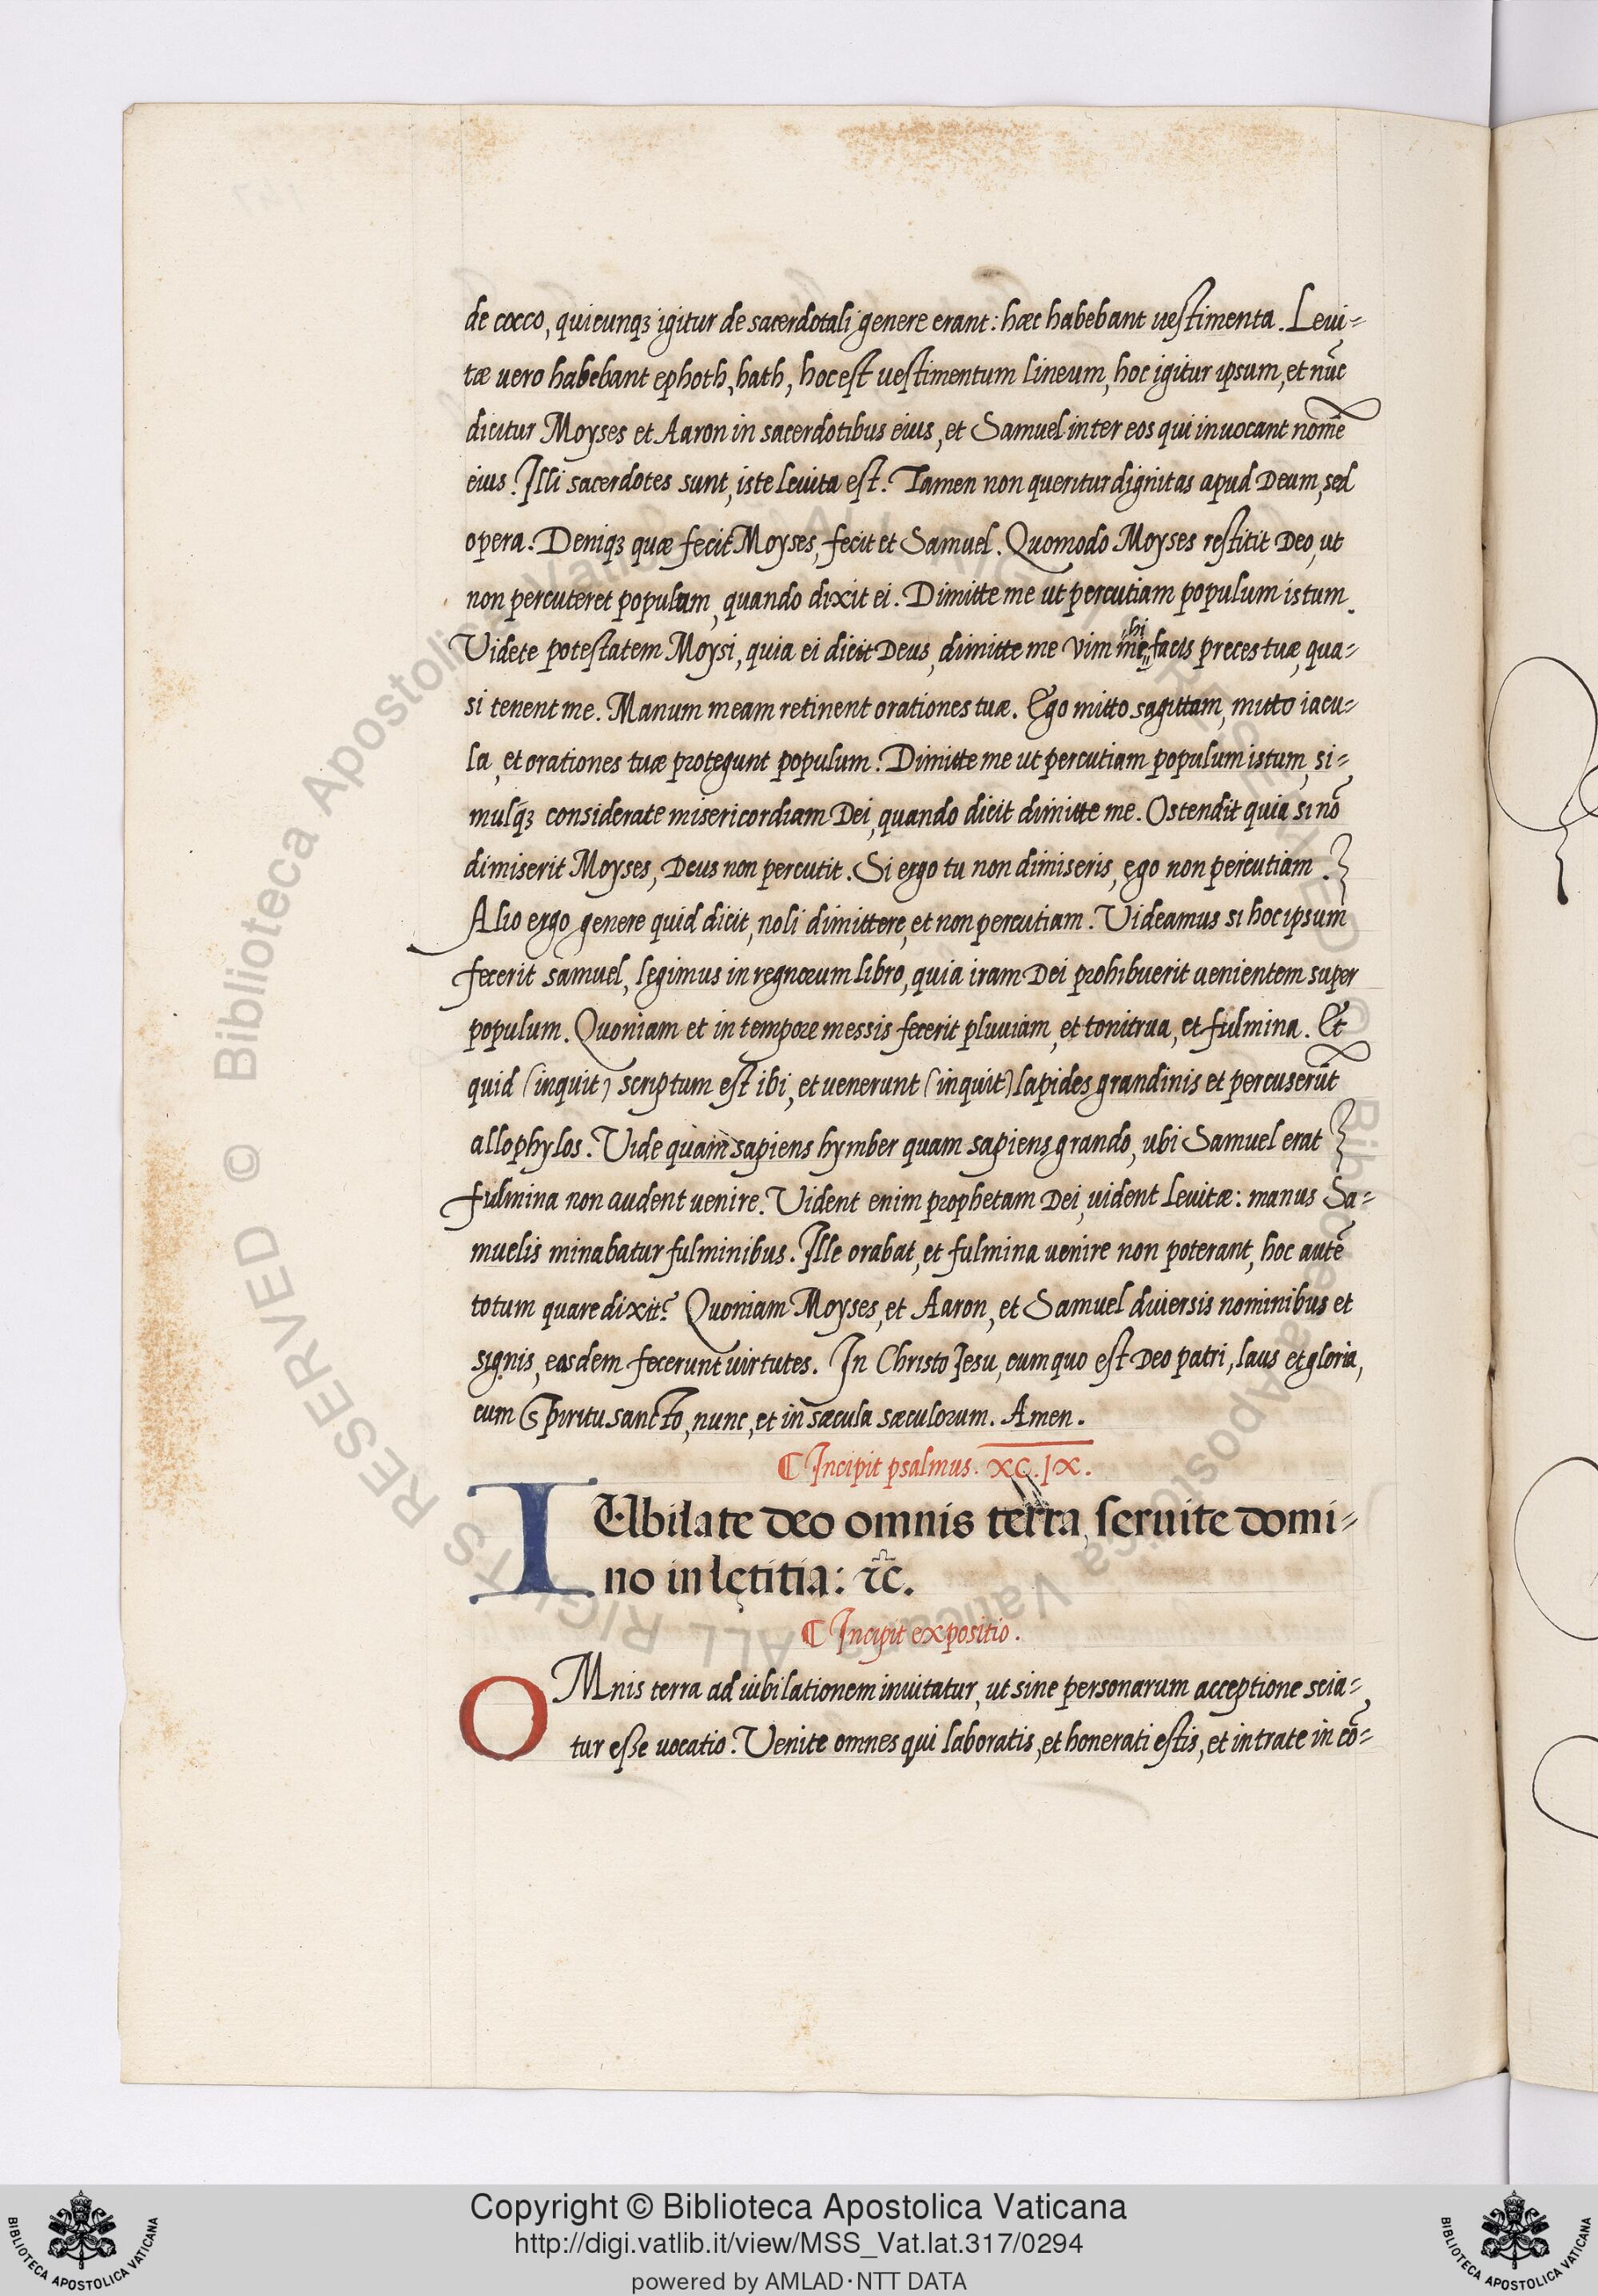 de cocco, quicunqꝫ igitur de sacerdotali genere erant: hæc habebant uestimenta. Leui-
tæ uero habebant ephoth, bath, hoc est uestimentum lineum, hoc igitur ipsum, et nūc
dicitur Moyses et Aaron in sacerdotibus eius, et Samuel inter eos qui inuocant nomē
eius. Illi sacerdotes sunt, iste leuita est. Tamen non queritur dignitas apud Deum, sed
opera. Deniqꝫ quæ fecit Moyses, fecit et Samuel. Quomodo Moyses restitit Deo, ut
non percuteret populum, quando dixit ei. Dimitte me ut percutiam populum istum.
Videte potestatem Moysi, quia ei dicit Deus, dimitte me vim me hi facis preces tuæ, qua-
si tenent me. Manum meam retinent orationes tuæ. Ego mitto sagittam, mitto iacu-
la, et orationes tuæ protegunt populum. Dimitte me ut percutiam populum istum, si-
mulq́ꝫ considerate misericordiam Dei, quando dicit dimitte me. Ostendit quia si nō
dimiserit Moyses, Deus non percutit. Si ergo tu non dimiseris, ego non percutiam.
Alio ergo genere quid dicit, noli dimittere, et non percutiam. Videamus si hoc ipsum
fecerit samuel, legimus in regnorum libro, quia iram Dei prohibuerit uenientem super
populum. Quoniam et in tempore messis fecerit pluuiam, et tonitrua, et fulmina. Et
quid (inquit) scriptum est ibi, et uenerunt (inquit) lapides grandinis et percuserūt
allophylos. Vide quam sapiens hymber quam sapiens grando, ubi Samuel erat
fulmina non audent uenire. Vident enim prophetam Dei, uident Leuitæ: manus Sa-
muelis minabatur fulminibus. Ille orabat, et fulmina uenire non poterant, hoc autē
totum quare dixit? Quoniam Moyses, et Aaron, et Samuel diuersis nominibus et
signis, easdem fecerunt uirtutes. In Christo Iesu, cum quo est Deo patri, laus et gloria,
cum Spiritu sancto, nunc, et in sæcula sæculorum. Amen.
¶ Incipit psalmus. XC.IX.
IUbilate deo omnis terra, seruite domi-
no in lętitia: ⁊c̃.
¶ Incipit expositio.
OMnis terra ad iubilationem inuitatur, ut sine personarum acceptione scia-
tur eße uocatio. Venite omnes qui laboratis, et honerati estis, et intrate in cō-
© Biblioteca Apostolica Vaticana ALL RIGHTS RESERVED © Biblioteca Apostolica Vaticana ALL RIGHTS RESERVED
Copyright © Biblioteca Apostolica Vaticana
http://digi.vatlib.it/view/MSS_Vat.lat.317/0294
powered by AMLAD·NTT DATA
BIBLIOTECA APOSTOLICA VATICANA
BIBLIOTECA APOSTOLICA VATICANA